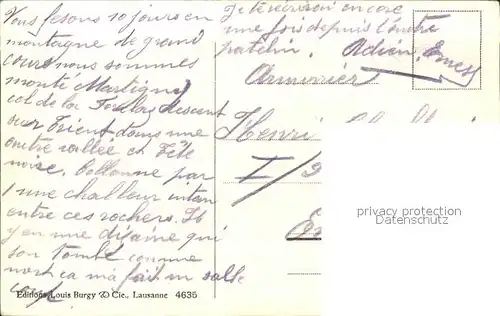 Vous fesons 10 jours en
montagne de grand
cours nous sommes
monté Martigny
col de la Forclaz descent
sur Trient dans une
autre vallée et Tête
noire. Collonne par
1 une challeur
entre ces rochers. Il
y en une dizaine qui
son tombé comme
mort ca m'a fait un salle
coup.
Je te récrirai encore
une fois depuis l'autre
patelin. Adieu, Ernest
Armurier
Henri
I/9
privacy protection
Datenschutz
Editions Louis Burgy & Cie., Lausanne 4635